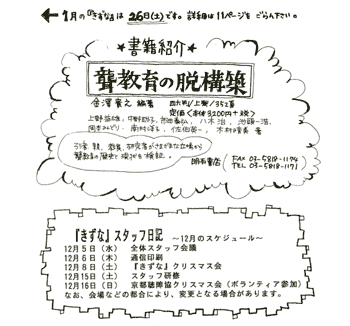 ← 1月の『きずな』は 26日(土)です。詳細は11ページをごらん下さい。
★書籍紹介★
聾教育の脱構築
金澤貴之 編著
四六判/上製/352頁
定価<本体3,200円+税>
上野益雄、中野聡子、
八木治、池頭一浩、
岡本みどり、南村洋子、佐伯英一、木村晴美 著
聾者、親、教員、研究者がさまざまな立場から
聾教育の歴史と現状を検証。
明石書店
FAX 03-5818-1174
TEL 03-5818-1171
『きずな』スタッフ日記 ~12月のスケジュール~
12月5日(水) 全体スタッフ会議
12月6日(木) 通信印刷
12月8日(土) 『きずな』クリスマス会
12月15日(土) スタッフ研修
12月16日(日) 京都聴障協クリスマス会(ボランティア参加)
なお、会場などの都合により、変更となる場合があります。